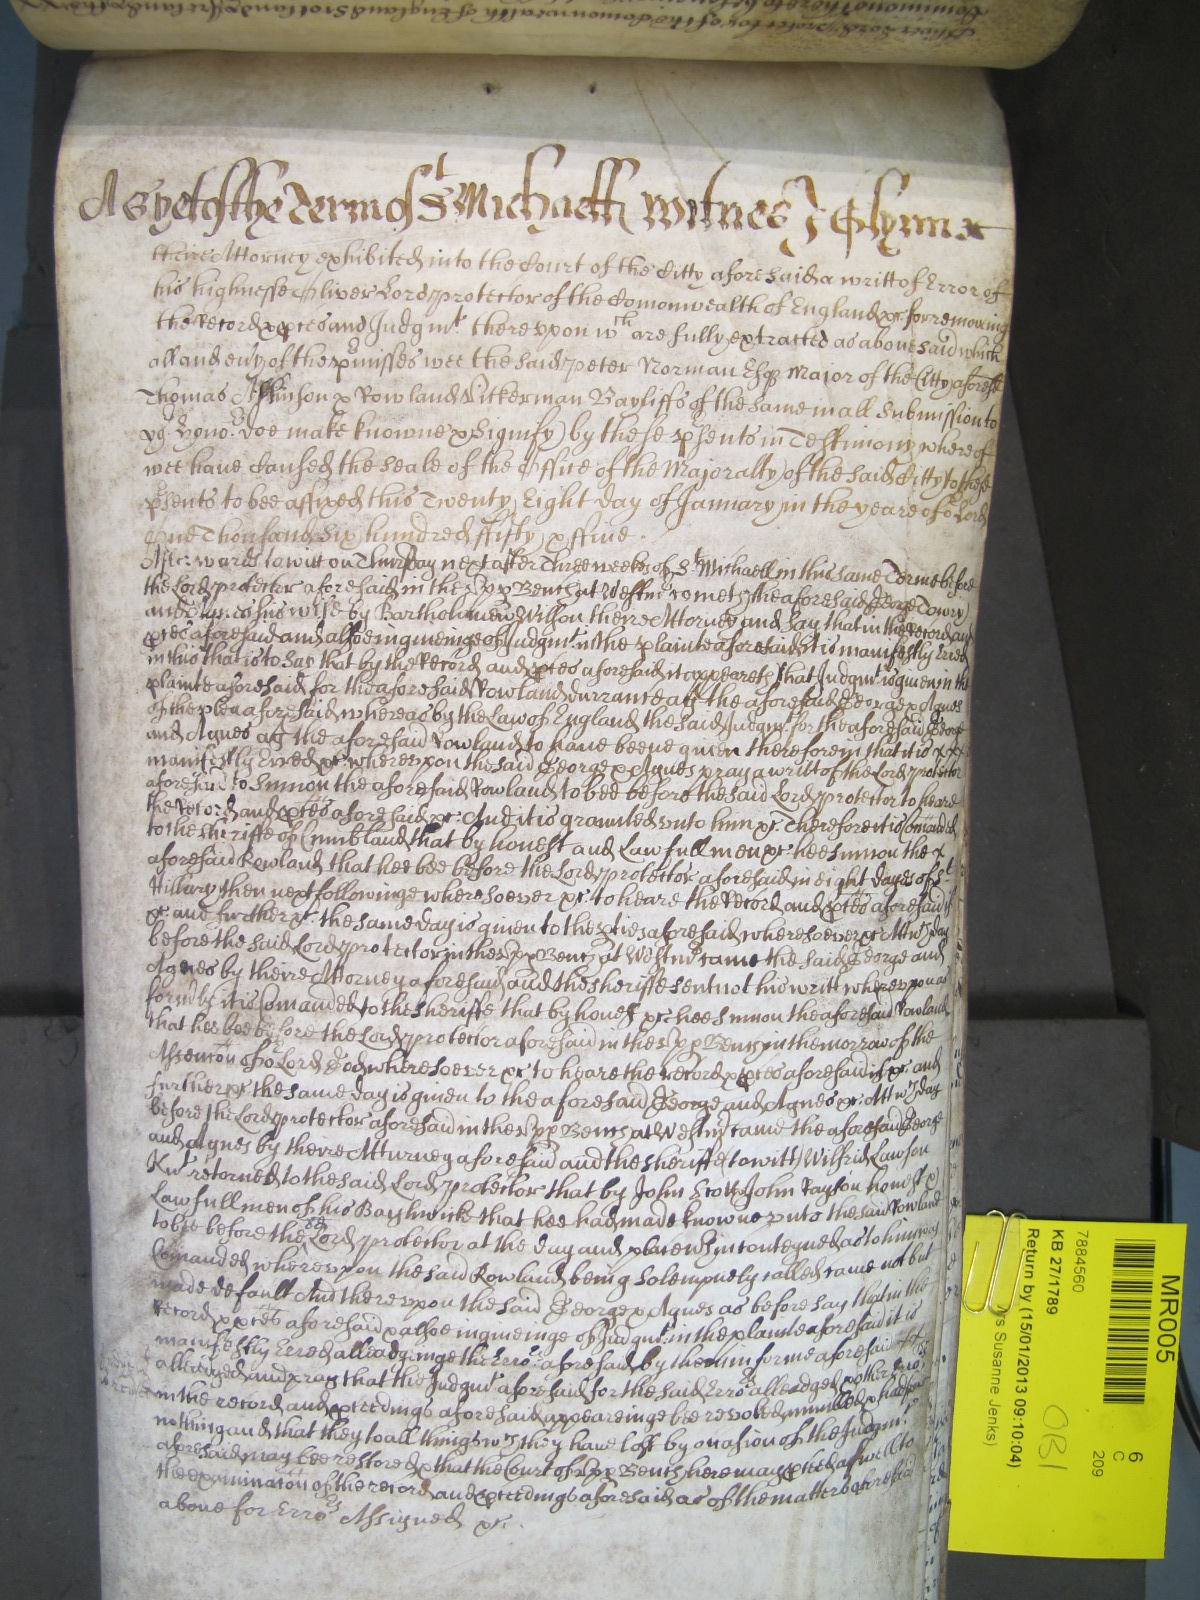 As yet of the Terme of St Michaell witnes J Glynn &
theire Attorney exhibited into the Court of the Citty aforesaid a writt of Error of
his highnesse Oliver Lord protector of the Comonwealth of England &c for removing
the Record & pces and Judgmt thereupon wch are fully extracted as abovesaid which
all and evry of the pmisses wee the said peter Norman Esqr Major of the Citty aforesd
Thomas Jackson & Rowland Bayliffs of the same in all Submission to
yr honor doe make knowne & Signify by these psents in Testimony whereof
wee have Caused the Seale of the Office of the Majoralty of the said Citty to these
psents to bee affixed this Twenty Eight day of January in the yeare of or Lord
One Thousand Six hundred ffifty & ffive.
Afterwards to witt on Thursday next after Three weekes of St Michaell in this same Terme before
the Lord protector aforesaid in the Upp Bench at Westmr cometh the aforesaid George Towry
and Agnes his wife by Bartholomew Willson theire Attorney and Say that in the Record and
pces aforesaid and alsoe in giveinge of Judgmt in the plainte aforesaid it is manifestly Erred
in this that is to Say that by the Record and pces aforesaid it appeareth that Judgmt is given in the
plainte aforesaid for the aforesaid Rowland Durrance agt the aforesaid George & Agnes
of the plea aforesaid whereas by the Law of England the said Judgmt for the aforesaid George
and Agnes agt the aforesaid Rowland to have beene given therefore in that it is
manifestly Erred &c whereupon the said George & Agnes pray a writt of the Lord protector
aforesaid to Sumon the aforesaid Rowland to bee before the said Lord protector to heare
the Record and pces aforesaid &c And it is graunted unto him &c Therefore it is Comanded
to the sheriffe of Cumbland that by honest and Lawfull men &c hee sumon the
aforesaid Rowland that hee bee before the Lord protector aforesaid in eight dayes of St
Hillary then next followinge wheresoever &c to heare the Record and pces aforesaid if
&c and further &c the same day is given to the pties aforesaid wheresoever &c Att wch day
before the said Lord protector in the Upp Bench at Westmr came the said George and
Agnes by theire Attorney aforesaid and the sheriffe sent not his writt whereupon as
formerly it is Comanded to the sheriffe that by honest &c hee sumon the aforesaid Rowland
that hee bee before the Lord protector aforesaid in the Upp Bench in the morrow of the
Assention of or Lord God wheresoever &c to heare the record & pces aforesaid if &c and
further &c the same day is given to the aforesaid George and Agnes &c Att wch day
before the Lord protector aforesaid in the Upp Bench at Westmr came the aforesaid George
and Agnes by theire Atturney aforesaid and the sheriffe (to witt) Wilfrid Lawson
Knt retorned to the said Lord protector that by John Scott John Rayson honest &
Lawfull men of his Baylywick that hee had made knowne unto the said Rowland
to bee before the sd Lord protector at the day and place wthin conteyned as to him was
Comanded whereupon the said Rowland being Solempnely called came not but
made default And thereupon the said George & Agnes as before say that in the
record & pces aforesaid & alsoe in giveinge of Judgmt in the plainte aforesaid it is
manifestly Erred alleadginge the Errors aforesaid by them in forme aforesaid
alleadged and pray that the Judgmt aforesaid for the said Errors alleadged & other Errors
in the record and pceedings aforesaid appeareinge bee revoked anulled & had for
nothing and that they to all things wch they have lost by occasion of the Judgmt
aforesaid may bee restored & that the Court of Upp Bench here may pceed aswell to
the examinacon of the record and pceedings aforesaid as of the matters aforesaid
above for Errors Assigned &c.
MR005
6
C
209
7884560
KB 27/1789
Return by (15/01/2013 09:10:04)
Susanne Jenks)
OB1